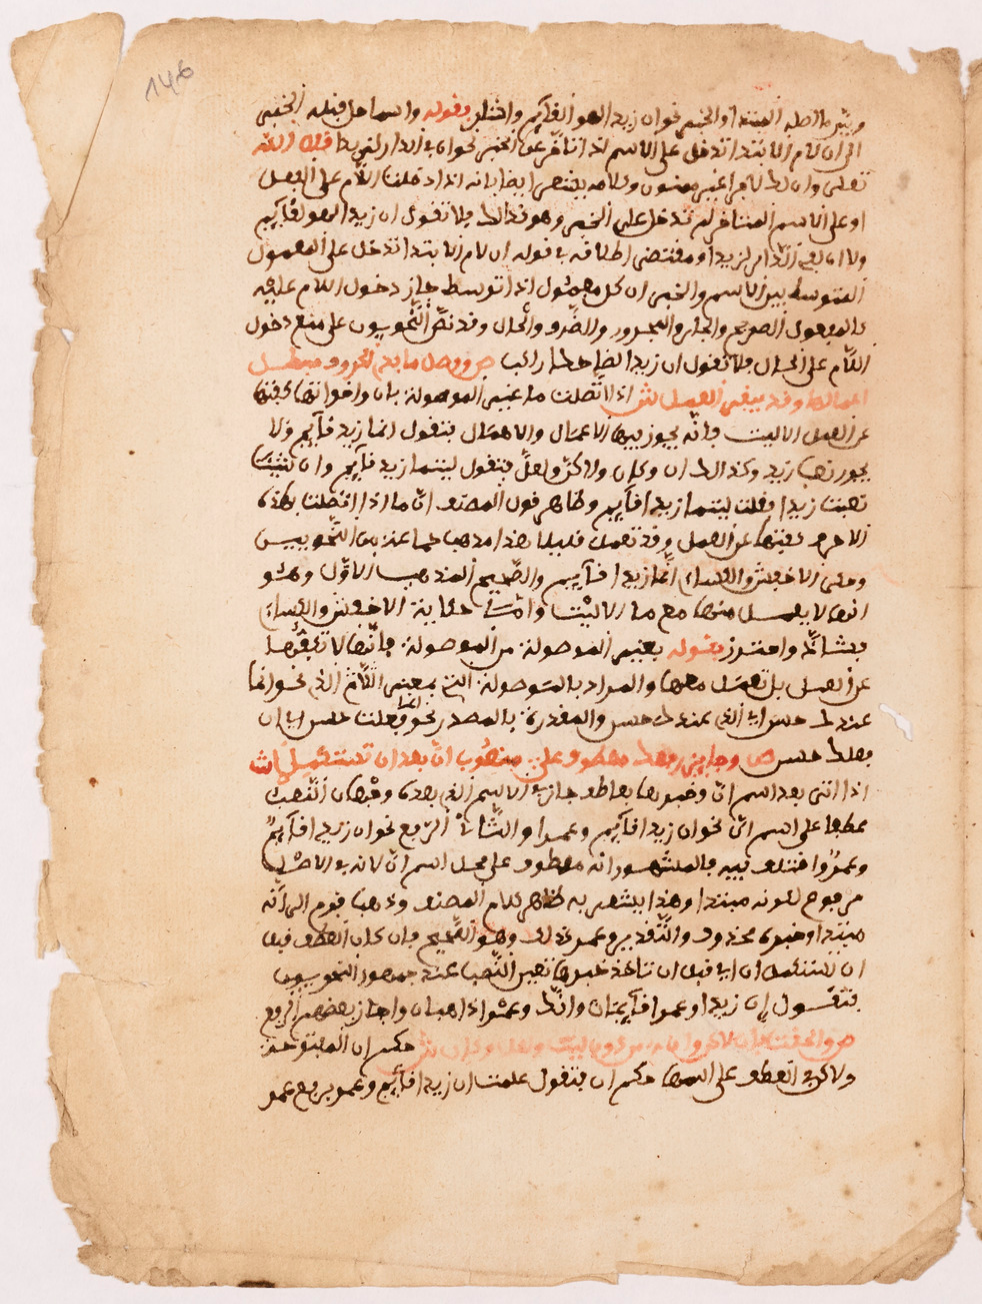 146
المبتدا والخبر نحو ان زيدا لهو القايم وبقوله واسما حل قبله الخبر
الى ان لام الابتدا تدخل على الاسم اذا تاخر عن الخبر نحو ان في الدار لزيدا قال الله
تعلى وان لك لاجرا غير ممنون وكلامه يقتضي ايضا انه اذا دخلت اللام على الفصل
او على الاسم المتاخر لم تدخل على الخبر وهو كذلك فلا تقول ان زيدا لهو لقايم
ولا ان في الدار لزيدا ومقتضى اطلاقه في قوله ان لام الابتدا تدخل على المعمول
المتوسط بين الاسم والخبر ان كل معمول اذا توسط جاز دخول اللام عليه
كالمفعول الصريح والجار والمجرور والظرف والحال وقد نص النحويون على منع دخول
اللام على الحال فلا تقول ان زيدا لضاحكا راكب ص ووصل ما بذي الحروف مبطل
اعمالها وقد يبقى العمل ش اذا اتصلت ما غير الموصولة بان واخواتها كفتها
عن العمل الا ليت فانه يجوز فيها الاعمال والاهمال فتقول انما زيد قايم ولا
يجوز نصب زيد وكذلك ان وكان ولكن ولعل فتقول ليتما زيد قايم وان شيت
نصبت زيدا فقلت ليتما زيدا قايم وظاهر قول المصنف ان ما اذا اتصلت بهذه
الاحرف كفتها عن العمل وقد تعمل قليلا وهذا مذهب جماعة من النحويين
وحكى الاخفش والكساءي انما زيدا قايم والصحيح المذهب الاول وهو
انه لا يعمل منها مع ما الا ليت واما حكاية الاخفش والكساءي
فشاذ واحترز بقوله بغير الموصولة من الموصولة فانها لا تكفها
عن العمل بل تعمل معها والمراد بالموصولة التي بمعنى الذي نحو ان ما
عندك حسن اي الذي عندك حسن والمقدرة بالمصدر نحو انما فعلت حسن اي ان
فعلك حسن ص وجايز رفعك معطوفا على منصوب ان بعد ان تستكملا ش
اذا اتي بعد اسم ان وخبرها بعاطف جاز في الاسم الذي بعده وجهان النصب
عطفا على اسم ان نحو ان زيدا قايم وعمرا والثاني الرفع نحو ان زيدا قايم
وعمرو واختلف فيه فالمشهور انه معطوف على محل اسم ان لانه في الاصل
مرفوع لكونه مبتدا وهذا يشعر به ظاهر كلام المصنف وذهب قوم الى انه
مبتدا وخبره محذوف والتقدير وعمرو كذلك وهو الصحيح فان كان العطف قبل
ان تستكمل ان اي قبل ان تاخذ خبرها تعين النصب عند جمهور النحويين
فتقول ان زيدا وعمرا قايمان وانك وعمرا ذاهبان واجاز بعضهم الرفع
ص والحقت بان لكن وان من دون ليت ولعل وكان ش حكم ان المفتوحة
ولكن في العطف على اسمها حكم ان فتقول علمت ان زيدا قايم وعمرو برفع عمرو